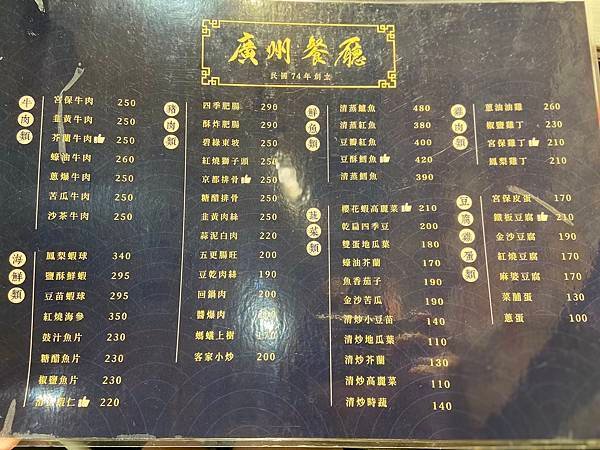 廣州餐廳
民國74年創立
牛肉類
宮保牛肉 250
韭黃牛肉 250
芥蘭牛肉 250
蠔油牛肉 260
蔥爆牛肉 250
苦瓜牛肉 250
沙茶牛肉 250
海鮮類
鳳梨蝦球 340
鹽酥鮮蝦 295
豆苗蝦球 295
紅燒海參 350
豉汁魚片 230
糖醋魚片 230
椒鹽魚片 230
蝦仁 220
豬肉類
四季肥腸 290
酥炸肥腸 290
碧綠東坡 250
紅燒獅子頭 250
京都排骨 250
糖醋排骨 250
韭黃肉絲 250
蒜泥白肉 220
五更腸旺 200
豆乾肉絲 190
回鍋肉 200
醬爆肉 200
螞蟻上樹 170
客家小炒 200
鮮魚類
清蒸鱸魚 480
清蒸紅魚 380
豆瓣紅魚 400
豆酥鱈魚 420
清蒸鱈魚 390
蔬菜類
櫻花蝦高麗菜 210
乾扁四季豆 200
雙蛋地瓜葉 180
蠔油芥蘭 170
魚香茄子 190
金沙苦瓜 190
清炒小豆苗 140
清炒地瓜葉 110
清炒芥蘭 130
清炒高麗菜 110
清炒時蔬 140
雞肉類
蔥油油雞 260
椒鹽雞丁 230
宮保雞丁 210
鳳梨雞丁 210
豆腐雞蛋類
宮保皮蛋 170
鐵板豆腐 210
金沙豆腐 190
紅燒豆腐 170
麻婆豆腐 170
菜脯蛋 130
蔥蛋 100